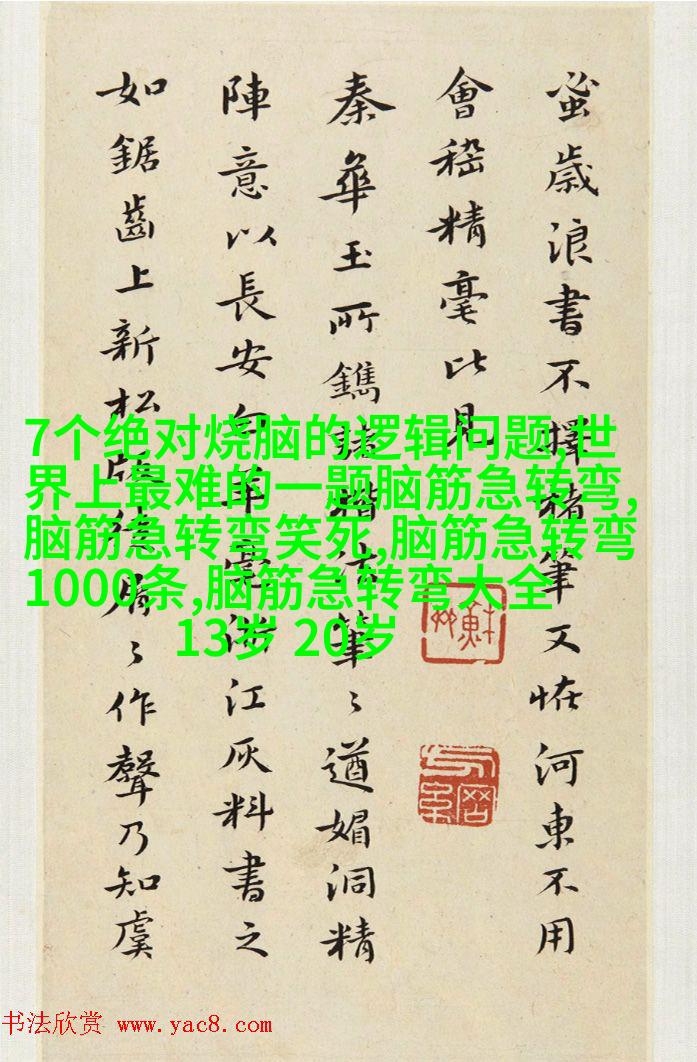 蚤歲浪書不擇楮筆又恠河東不用
會稽精毫比見
秦華玉所鐫諸楷法筆〻遒媚洞精
陣意以長安江灰料書之
如鋸齒上新松版〻作聲乃知虞
7个绝对烧脑的逻辑问题,世
界上最难的一题脑筋急转弯,
脑筋急转弯笑死,脑筋急转弯
1000条,脑筋急转弯大全
13岁 20岁
书法欣赏 www.yac8.com